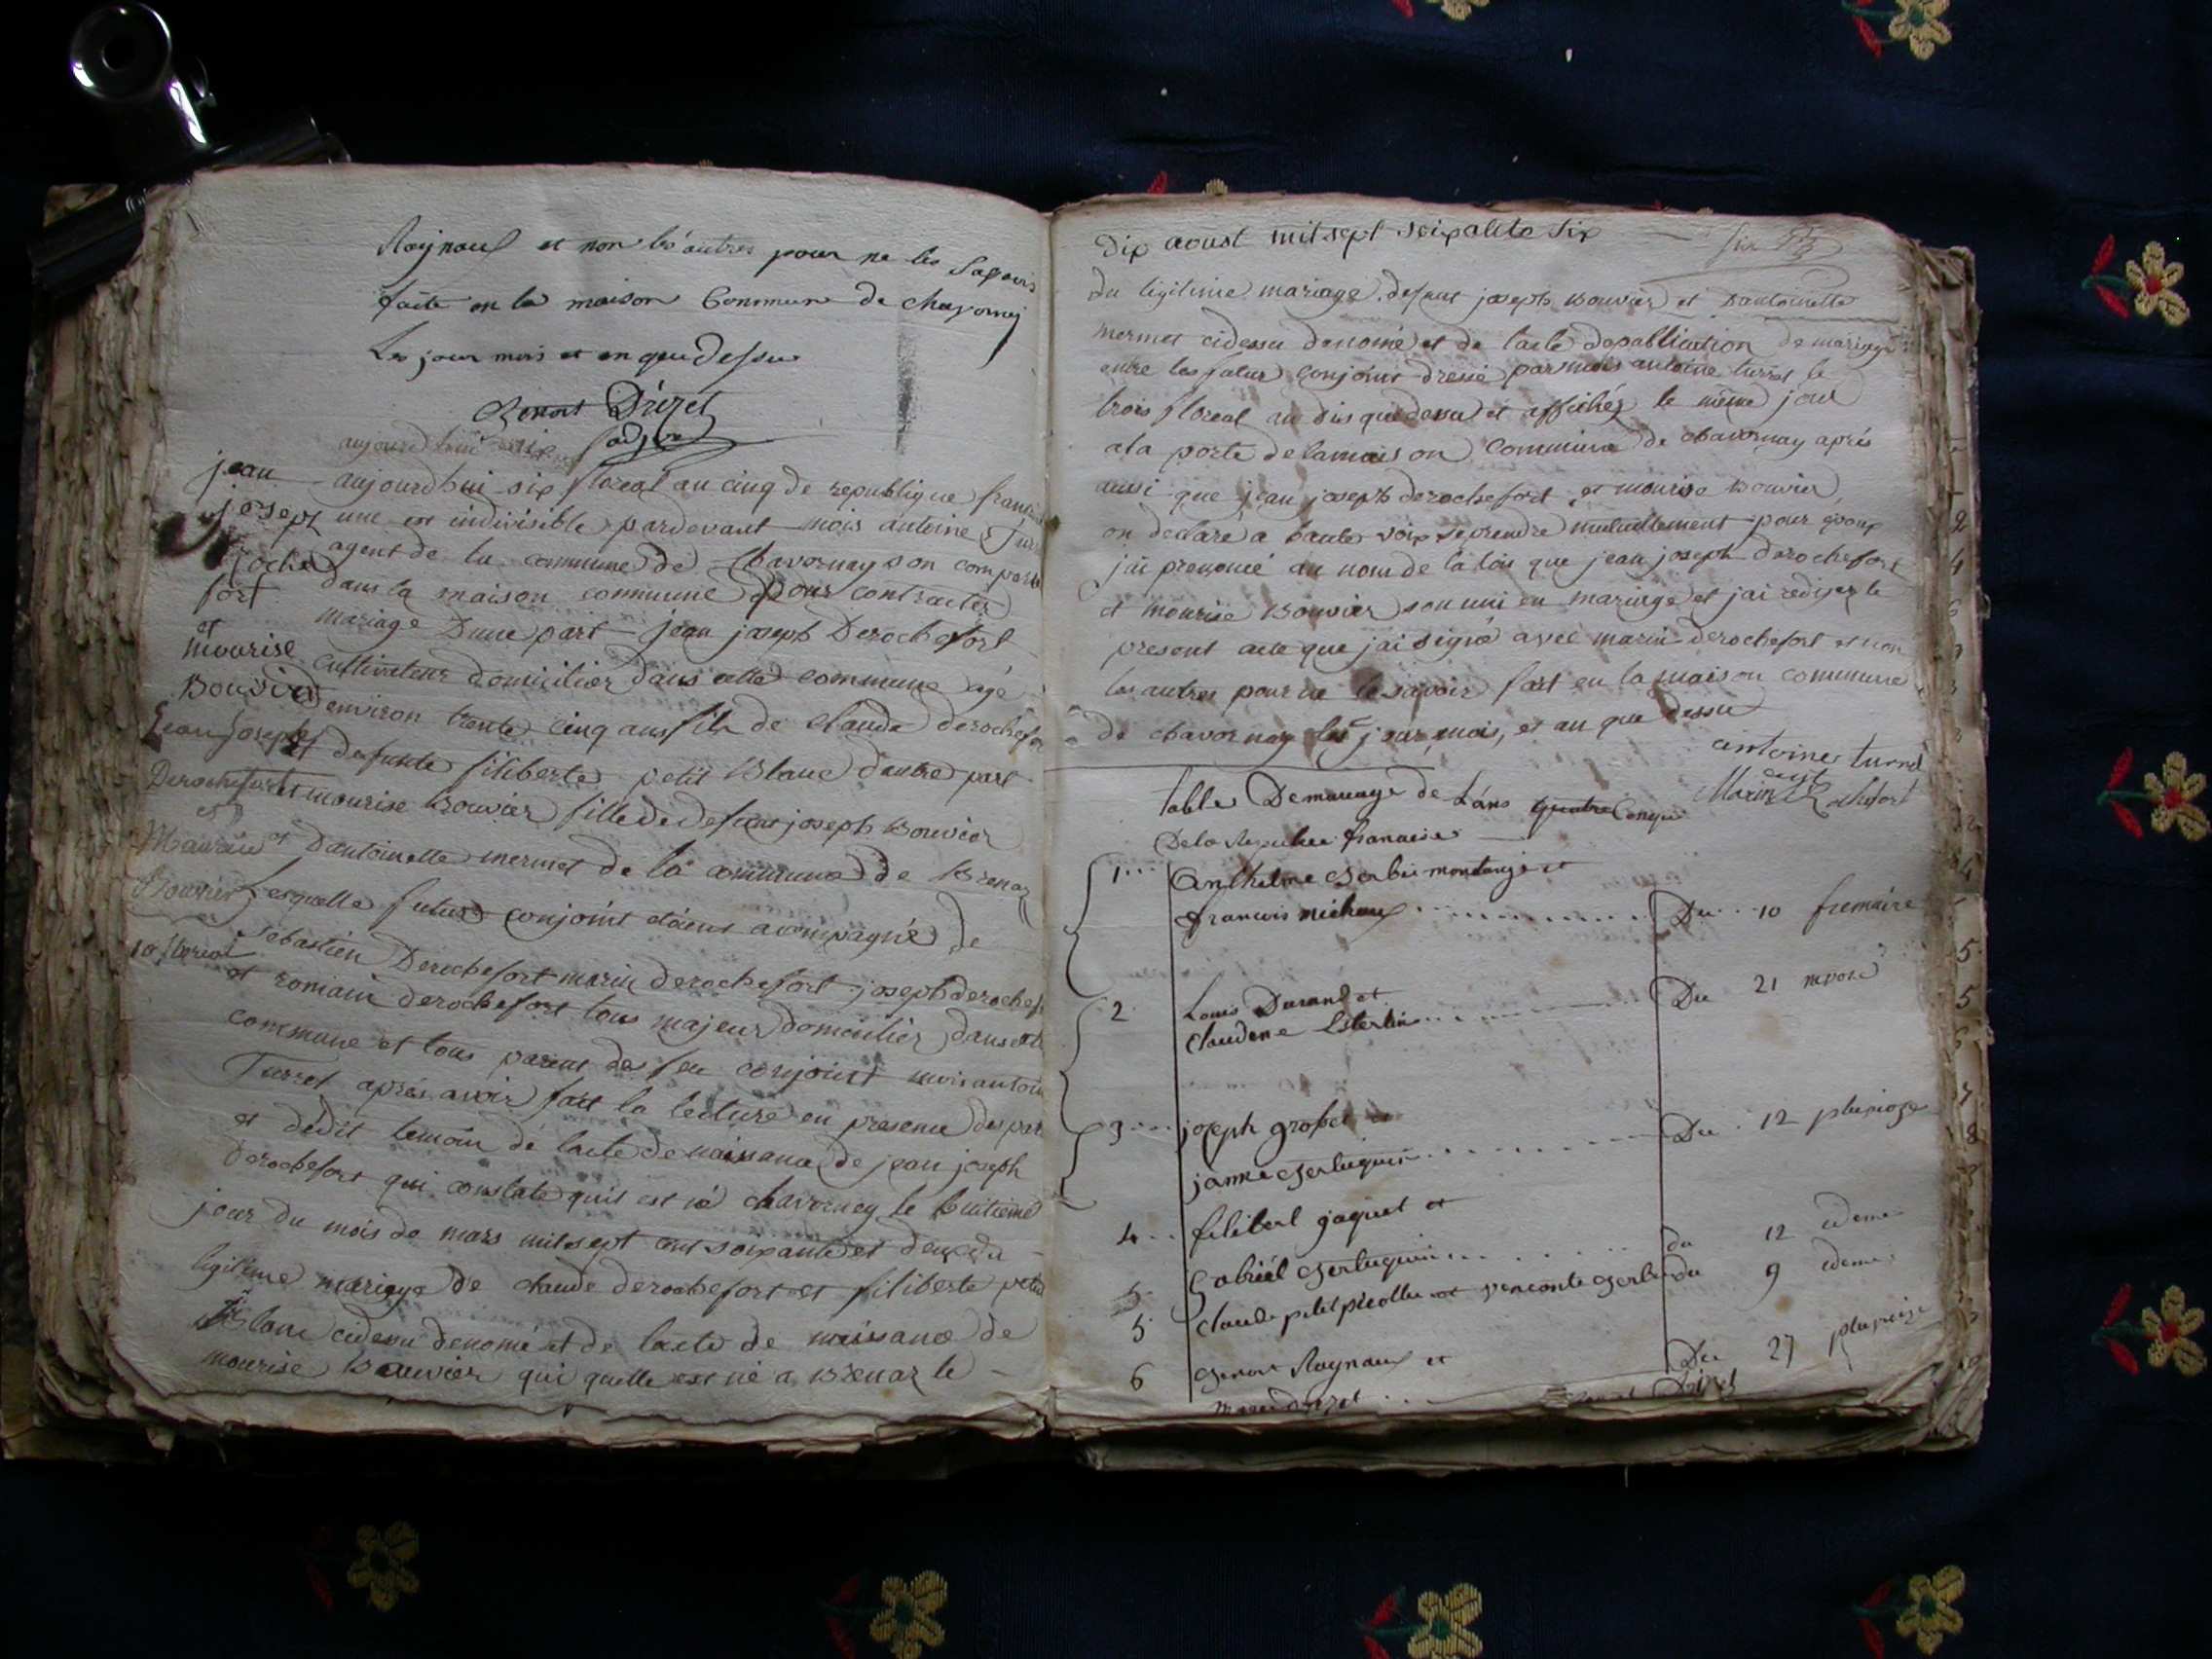 Raynaud et non les autres pour ne les savoir
faite en la maison Commune de chavornay
Les jour mois et en que dessus
Benoit Drizet
adjt
aujourdhuit six
jean
josept
Roche
fort
et
mourise
Bouvier
Jean Joseph
Derochefort
et
Maurise
Bouvier
10 floreal
aujourdhui six floreal an cinq de republique francai
une et indivisible pardevant mois antoine Turr
agent de la commune de Chavornay son comparu
dans la maison commune pour contracter
mariage Dune part jean joseph Derochefort
cultivateur domicilier dans cette commune agé
denviron trente cinq ans fils de claude derochefo
et defunte filiberte petit Blanc dautre part
et mourise Bouvier fille de defunt joseph Bouvier
et dantoinette mermet de la commune de Brenaz
Lesquelle futur conjoint etaient acompagné de
Sebastien Derochefort marin derochefort joseph derochef
et romain derochefort tous majeur domicilier dans cette
commune et tous parent des feu conjoint mois antoin
Turret aprés avoir fait la lecture en presence des par
et dedit temoin de lacte de naissance de jean joseph
derochefort qui constate quil est né chavornay le huitieme
jour du mois de mars mil sept cent soixante et deux du
ligitime mariage de claude derochefort et filiberte petit
Blanc cidesu denomé et de lacte de naissance de
mourise Bouvier qui quelle est né a Brenaz le
Dix aoust mil sept soixante six
du ligitime mariage defunt joseph Bouvier et Dantoinette
mermet cidessu denomé et de lacte depublication de mariage
entre les futur conjoint dressé par mois antoine turret le
trois floreal an dis que dessu et affichéz le même jour
a la porte de la maison Commune de chavornay aprés
aussi que jean joseph derochefort et mourise Bouvier
on declaré a haute voix se prendre mutuellement pour epoux
j'ai prenoncé au nom de la lois que jean joseph derochefort
et mourise Bouvier son uni en mariage et j'ai redigez le
present acte que j'ai signé avec marin derochefort et non
les autres pour ne le savoir fait en la maison commune
de chavornay les jour, mois, et an que dessu
antoine turret
agt
Marin De Rochefort
table De mariage de Lans quatre Cenque
De la Republee francaise
1 Anthelme Gerbi montange et
francois michaux Du 10 fremaire
2 Louis Durand et
claudene Du 21 nivose
3 joseph grobet et
janne Berluquin Du 12 pluviose
4 filibert jaquet et
Gabriel Berluquin du 12 idem
5 claude petit picollet et du 9 idem
6 Benoit Raynaud et Du 27 pluviose
Drizet
Benoit Drizet